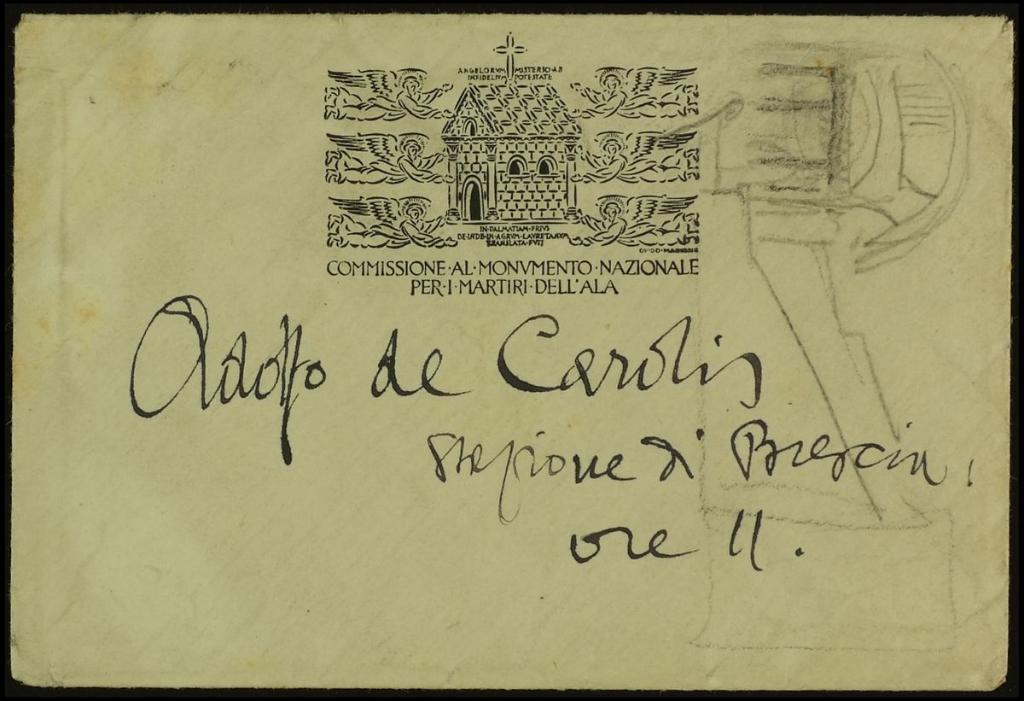 ANGELORVM MISTERIO AB
INFIDELIVM POTESTATE
IN DALMATIAM PRIVS
DEINDE IN AGRVM LAVRETANVM
TRANSLATA FVIT
COMMISSIONE·AL·MONVMENTO·NAZIONALE
PER·I·MARTIRI·DELL'ALA
Adolfo de Carolis
stazione di Brescia,
ore 11.